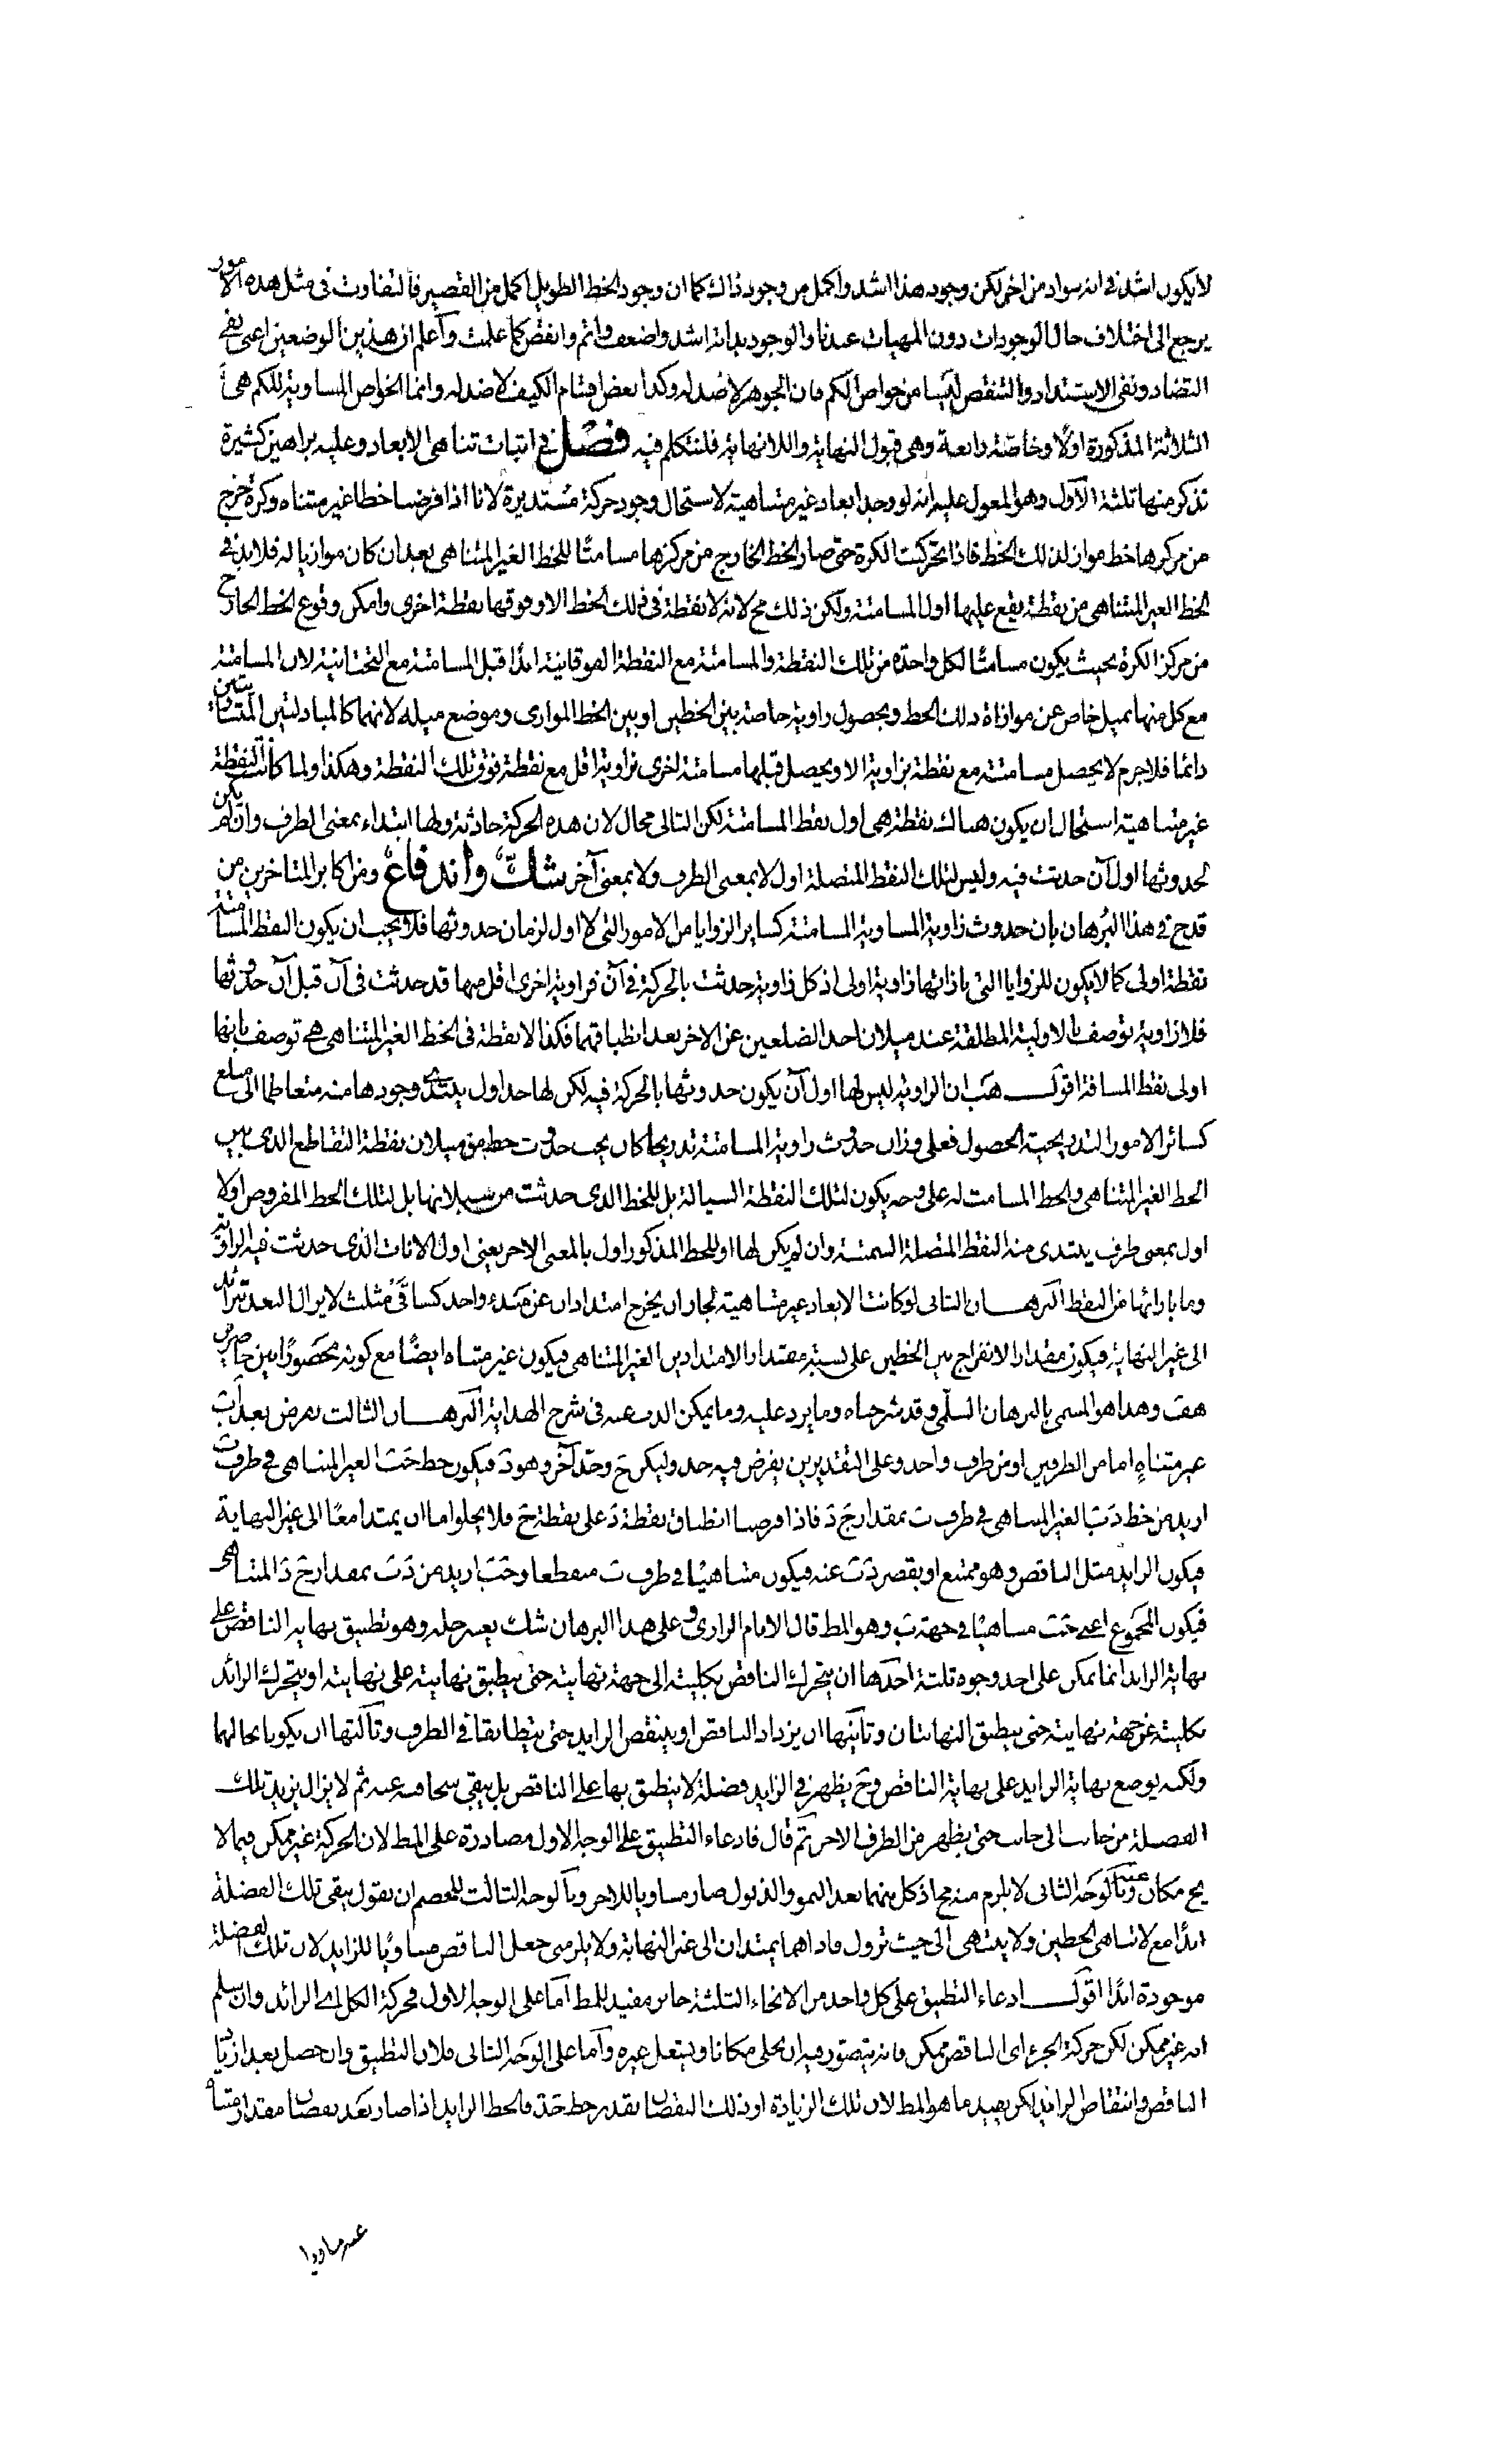 لا يكون اشد في انه سواد من اخر لكن وجود هذا اشد واكمل من وجود ذاك كما ان وجود الخط الطويل اكمل من القصير فالتفاوت في مثل هذه الامور
يرجع الى اختلاف حال الوجودات دون المهيات عندنا والوجود بذاته اشد واضعف واتم وانقص كما علمت واعلم ان هذين الوضعين اعنى نفى
التضاد ونفى الاشتداد والتنقص ليسا من خواص الكم فان الجوهر لا ضد له وكذا بعض اقسام الكيف لا ضد له وانما الخواص المساوية للكم هي
الثلاثة المذكورة اولا وخاصة رابعة وهى قبول النهاية واللانهاية فلنتكلم فيه فصل في اثبات تناهى الابعاد وعليه براهين كثيرة
نذكر منها ثلثة الاول وهو المعول عليه انه لو وجد ابعاد غير متناهية لاستحال وجود حركة مستديرة لانا اذا فرضنا خطا غير متناه وكرة خرج
من مركزها خط مواز لذلك الخط فاذا تحركت الكرة حتى صار الخط الخارج من مركزها مسامتا للخط الغير المتناهى بعد ان كان موازيا له فلا بد في
الخط الغير المتناهى من نقطة يقع عليها اول المسامتة ولكن ذلك مح لانه لا نقطة في ذلك الخط الا وفوقها نقطة اخرى وامكن وقوع الخط الخارج
من مركز الكرة بحيث يكون مسامتا لكل واحدة من تلك النقطة والمسامتة مع النقطة الفوقانية ابدا قبل المسامتة مع التحتانية لان المسامتة
مع كل منها بميل خاص عن موازاة ذلك الخط وبحصول زاوية خاصة بين الخطين او بين الخط الموازى وموضع ميله لانهما كالمبادلتين المتساويتين
دائما فلا جرم لا يحصل مسامتة مع نقطة بزاوية الا ويحصل قبلها مسامتة اخرى بزاوية اقل مع نقطة فوق تلك النقطة وهكذا ولما كانت النقطة
غير متناهية استحال ان يكون هناك نقطة هى اول نقط المسامتة لكن التالى محال لان هذه الحركة حادثة ولها ابتداء بمعنى الطرف وان لم يكن
لحدوثها اول آن حدثت فيه وليس لتلك النقط المتصلة اول لا بمعنى الطرف ولا بمعنى آخر شك واندفاع ومن اكابر المتاخرين من
قدح في هذا البرهان بان حدوث زاوية المساوية المسامتة كساير الزوايا من الامور التى لا اول لزمان حدوثها فلا يجب ان يكون النقط المسامتة
نقطة اولى كما لا يكون للزوايا التى بازائها زاوية اولى اذ كل زاوية حدثت بالحركة في آن فزاوية اخرى اقل منها قد حدثت في آن قبل آن حدوثها
فلا زاوية توصف بالاولية المطلقة عند ميلان احد الضلعين عن الاخر بعد انطباقهما فكذا لا نقطة في الخط الغير المتناهى هى توصف بانها
اولى نقط المسافة اقول هب ان الزاوية ليس لها اول آن يكون حدوثها بالحركة فيه لكن لها حد اول يبتدى وجودها منه متعاظما الى مبلغ
كسائر الامور التدريجية الحصول فعلى وزان حدوث زاوية المسامتة تدريجا كان يجب حدوث خط من ميلان نقطة التقاطع الذى بين
الخط الغير المتناهى والخط المسامت له على وجه يكون لتلك النقطة السيالة بل للخط الذى حدثت من سيلانها بل لتلك الخط المفروض اولا
اول بمعنى طرف يبتدى منه النقط المتصلة السمتية وان لم يكن لها او للخط المذكور اول بالمعنى الاخر يعنى اول الانات الذى حدثت فيه الزاوية
وما بازائها من النقط البرهان الثانى لو كانت الابعاد غير متناهية لجاز ان يخرج امتدادان عن مبدء واحد كساقى مثلث لا يزال البعد تزائد
الى غير النهاية فيكون مقدار الانفراج بين الخطين على نسبة مقدار الامتدادين الغير المتناهى فيكون غير متناه ايضا مع كونه محصورا بين حاصرين
هف وهذا هو المسمى بالبرهان السلمى وقد شرحناه وما يرد عليه وما يمكن الذب عنه في شرح الهداية البرهان الثالث نفرض بعد اب
غير متناه اما من الطرفين او من طرف واحد وعلى التقديرين يفرض فيه حد وليكن ج وحد آخر وهو د فيكون خط ج ب الغير المتناهى في طرف ب
ازيد من خط د ب الغير المتناهى في طرف ب بمقدار ج د فاذا فرضنا انطباق نقطة د على نقطة ج فلا يخلو اما ان يمتدا معا الى غير النهاية
فيكون الزايد مثل الناقص وهو ممتنع او يقصر د ب عنه فيكون متناهيا في طرف ب منقطعا وج ب ازيد من د ب بمقدار ج د المتناهى
فيكون المجموع اعنى ج ب متناهيا في جهة ب وهو المط قال الامام الرازى وعلى هذا البرهان شك يعسر حله وهو تطبيق نهاية الناقص على
نهاية الزايد انما يمكن على احد وجوه ثلثة احدها ان يتحرك الناقص بكليته الى جهة نهايته حتى ينطبق نهايته على نهايته او يتحرك الزائد
بكليته عن جهة نهايته حتى ينطبق النهايتان وثانيها ان يزداد الناقص او ينقص الزايد حتى يتطابقا في الطرف وثالثها ان يكونا بحالهما
ولكنه يوضع نهاية الزايد على نهاية الناقص وح يظهر في الزايد فضلة لا ينطبق بها على الناقص بل يبقى متجافيه عنه ثم لا يزال يزيد تلك
الفضلة من جانب الى جانب حتى يظهر من الطرف الاخر ثم قال فادعاء التطبيق على الوجه الاول مصادرة على المط لان الحركة غير ممكن فيما لا
يخ مكان عنه وبالوجه الثانى لا يلزم منه مح اذ كل منهما بعد النمو والذبول صار مساويا للاخر وبالوجه الثالث للخصم ان يقول يبقى تلك الفضلة
ابدا مع لا تناهى الخطين ولا ينتهى الى حيث تزول فاذا هما يمتدان الى غير النهاية ولا يلزمى جعل الناقص مساويا للزايد لان تلك الفضلة
موجودة ابدا اقول ادعاء التطبيق على كل واحد من الانحاء الثلثة جائز مفيد للمط اما على الوجه الاول فحركة الكل اى الزائد وان سلم
انه غير ممكن لكن حركة الجزء اى الناقص ممكن فانه يتصور فيه ان يخلى مكانا ويشغل غيره واما على الوجه الثانى فلان التطبيق وان حصل بعد ازدياد
الناقص وانتقاص الزايد لكن يفيد ما هو المط لان تلك الزيادة او ذلك النقصان بقدر خط ج د فالخط الزايد اذا صار بعد نقصان مقدار متناه